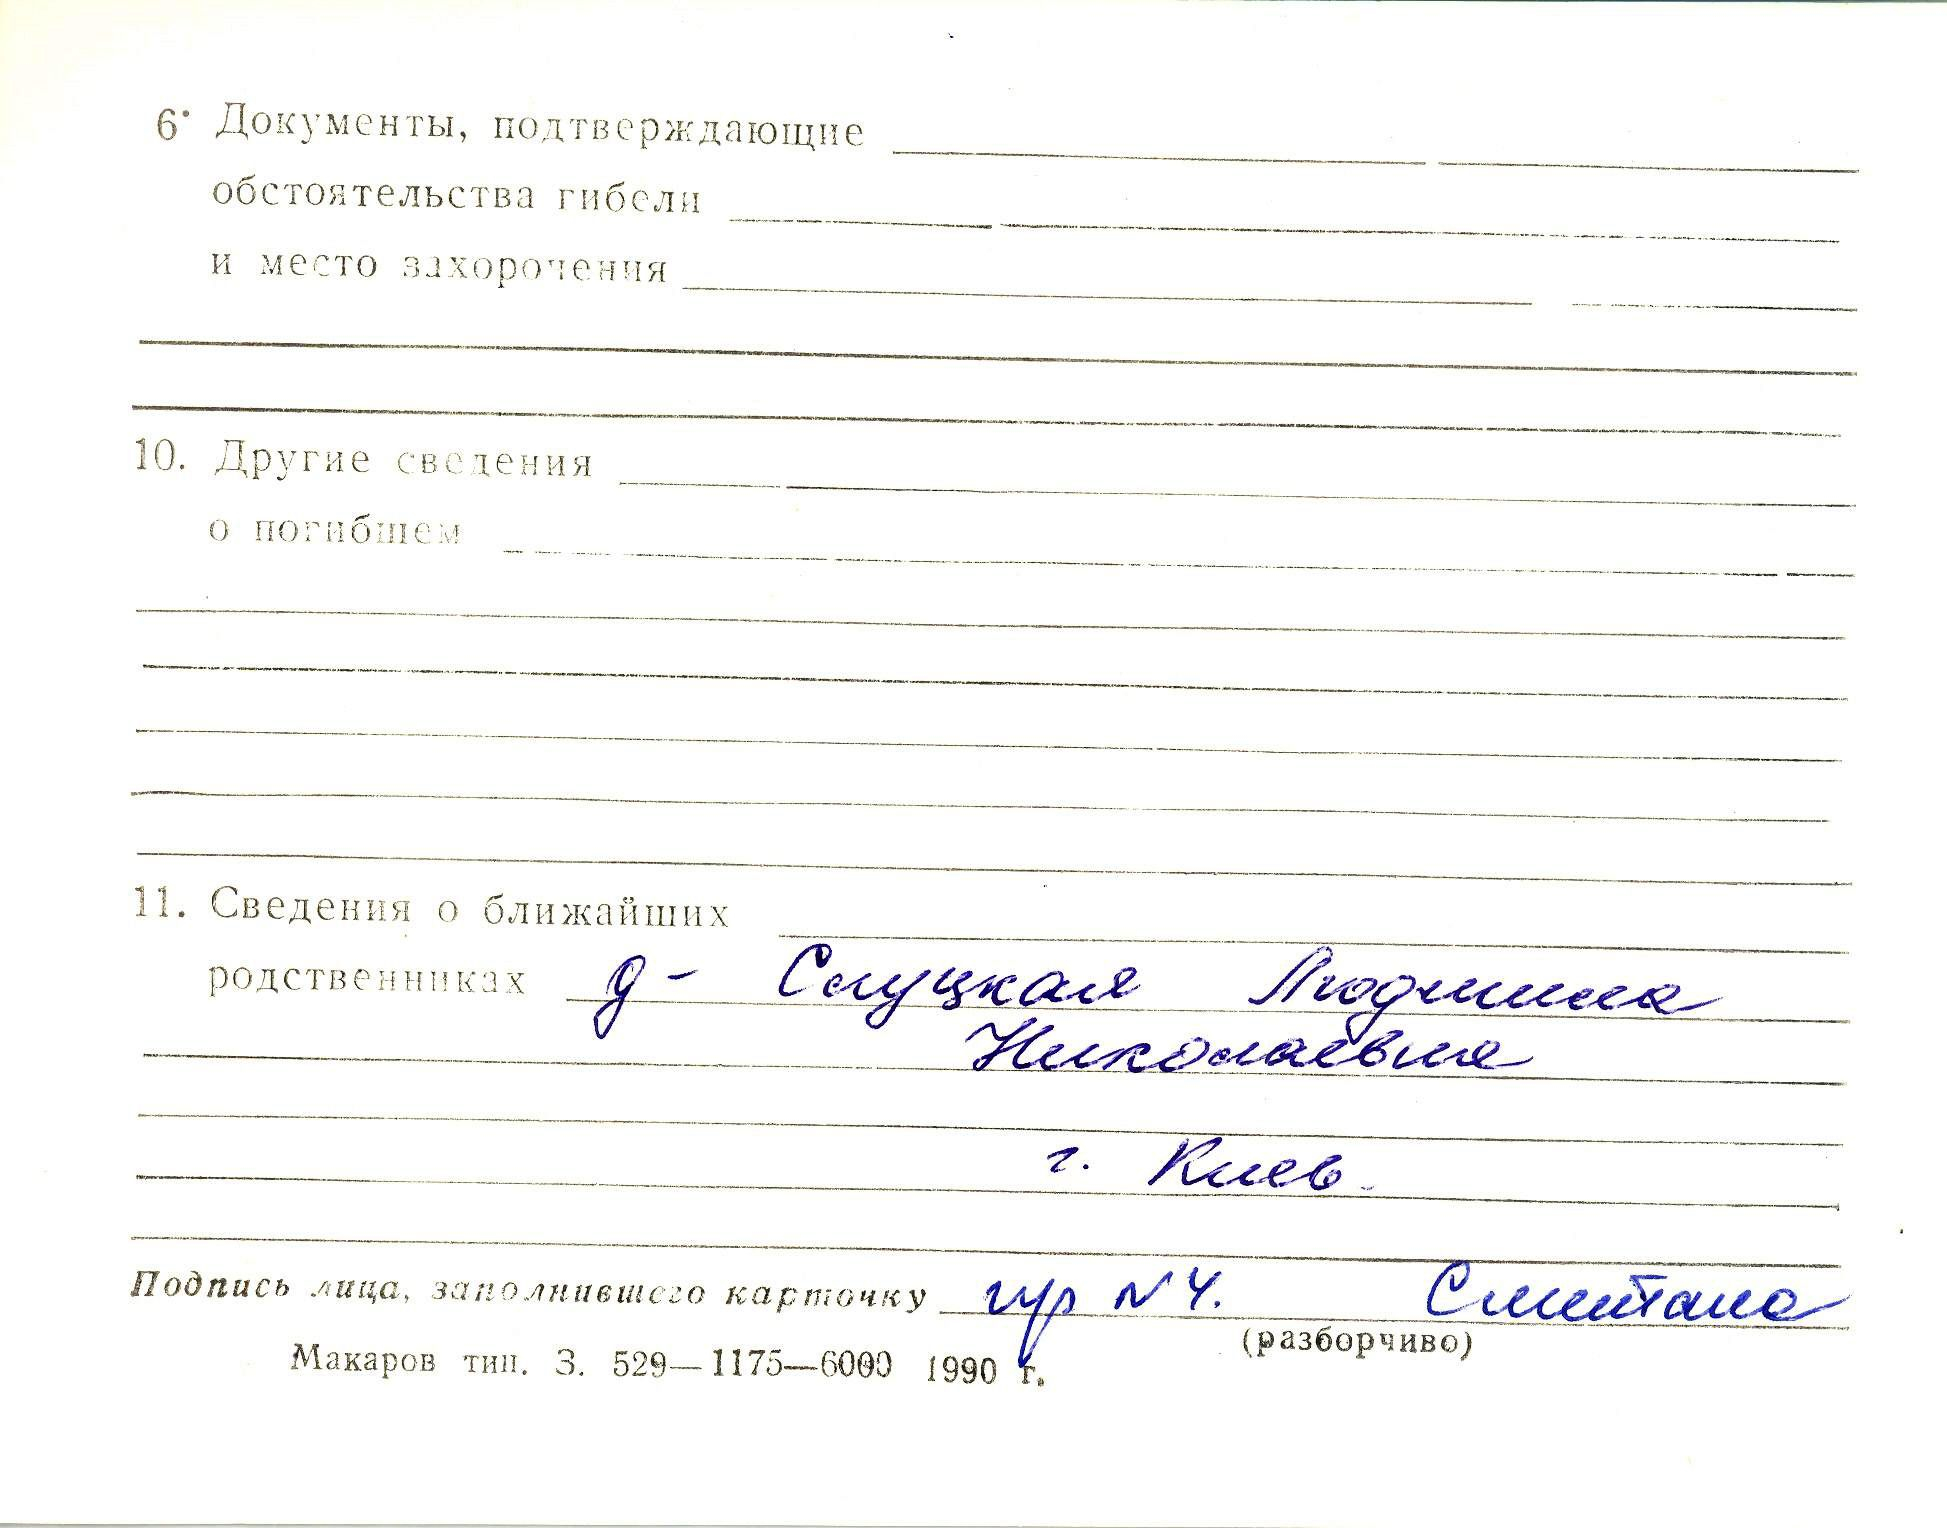 6. Документы, подтверждающие
обстоятельства гибели
и место захоронения
10. Другие сведения
о погибшем
11. Сведения о ближайших
родственниках д- Слуцкая Людмила
Николаевна
г. Киев.
Подпись лица, заполнившего карточку гр N4. Сметана
(разборчиво)
Макаров тип. З. 529—1175—6000 1990 г.